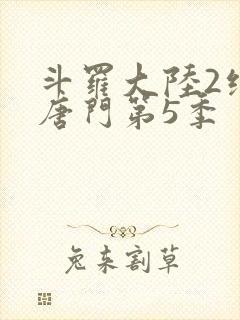 斗羅大陸2
唐門第5季
兔來割草